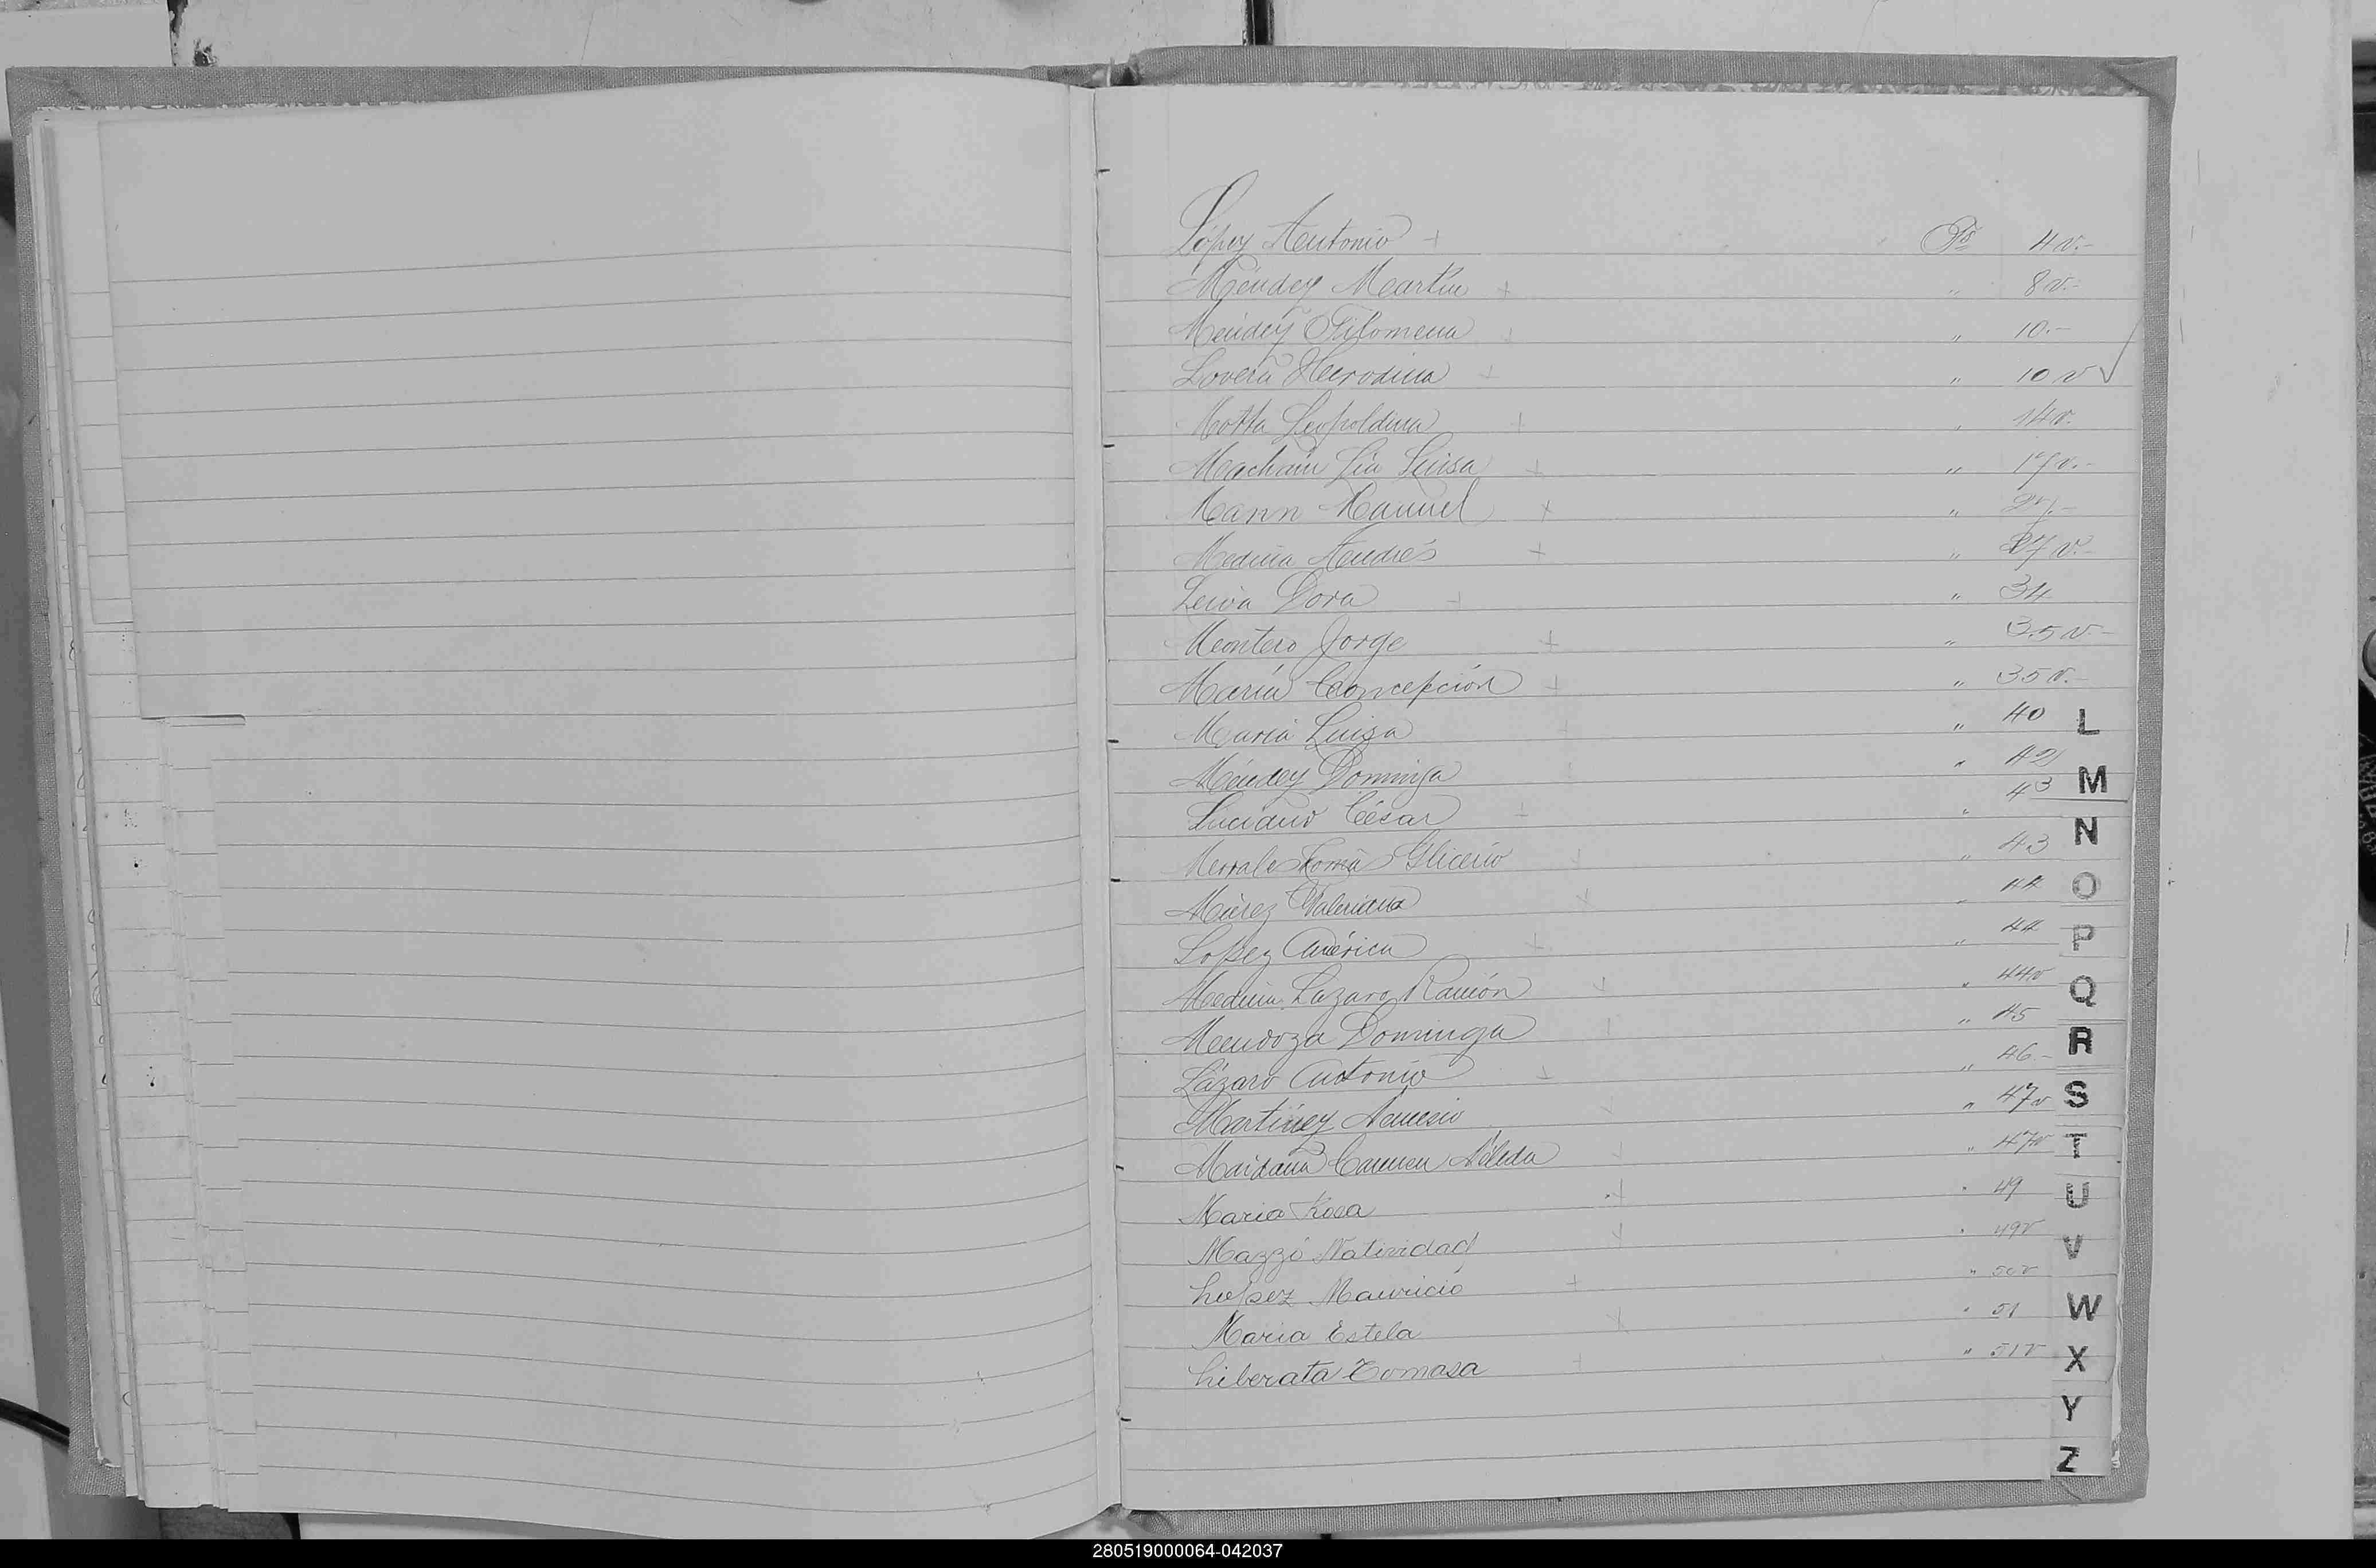 López Antonio + Ps 4 v.-
Méndez Martín + " 8 v.-
Méndez Filomena + " 10.-
Lovera Herodina + " 10 v
Motta Leopoldina + " 14 v.
Machain Lia Luisa + " 17 v.-
Mann Manuel + "
Medina Andrés + " 27 v.-
Leiva Dora + " 34
Montero Jorge + " 35 v.-
María Concepción + " 35 v.-
María Luisa + " 40
Méndez Dominga " 42
Luciano César + " 43
Glicerio " 43
Valeriana + " 44
Lopez América + " 44
Medina Lazaro Ramón + " 44v
Mendoza Dominga + " 45
Lázaro Antonio + " 46.-
Martínez Nemesio + " 47v
Maidana Carmen Nélida + " 47v
Maria Rosa + " 49
Mazzó Natividad + " 49v
Lopez Mauricio + " 50v
Maria Estela + " 51
Liberata Tomasa + " 51v
L
M
N
O
P
Q
R
S
T
U
V
W
X
Y
Z
280519000064-042037